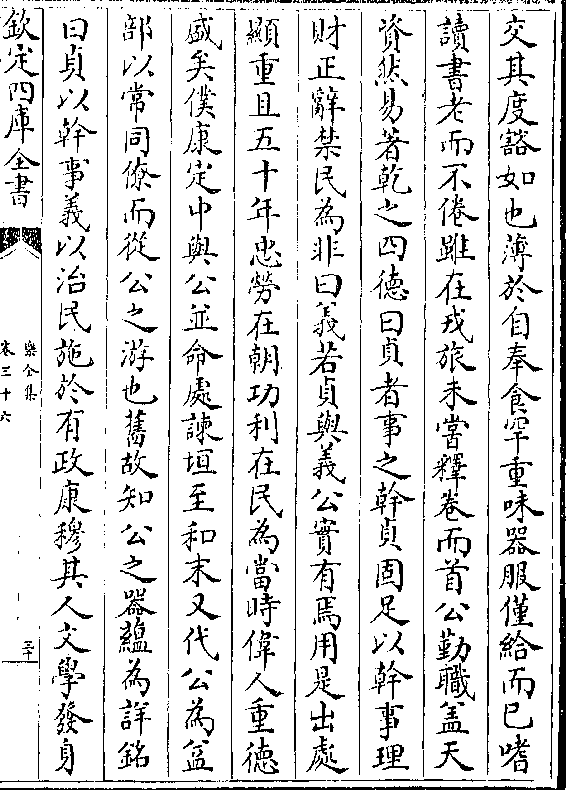 交其度豁如也薄於自奉食罕重味器服僅給而已嗜
讀書老而不倦雖在戎旅未嘗釋卷而首公勤職盖天
資然易著乾之四德曰貞者事之幹貞固足以幹事理
財正辭禁民為非曰義若貞與義公實有焉用是出處
顯重且五十年忠勞在朝功利在民為當時偉人重德
盛矣僕康定中與公並命處諫垣至和末又代公為益
部以常同僚而從公之游也舊故知公之器蘊為詳銘
曰貞以幹事義以治民施於有政康穆其人文學發身
欽定四庫全書
樂全集
卷三十六
三十